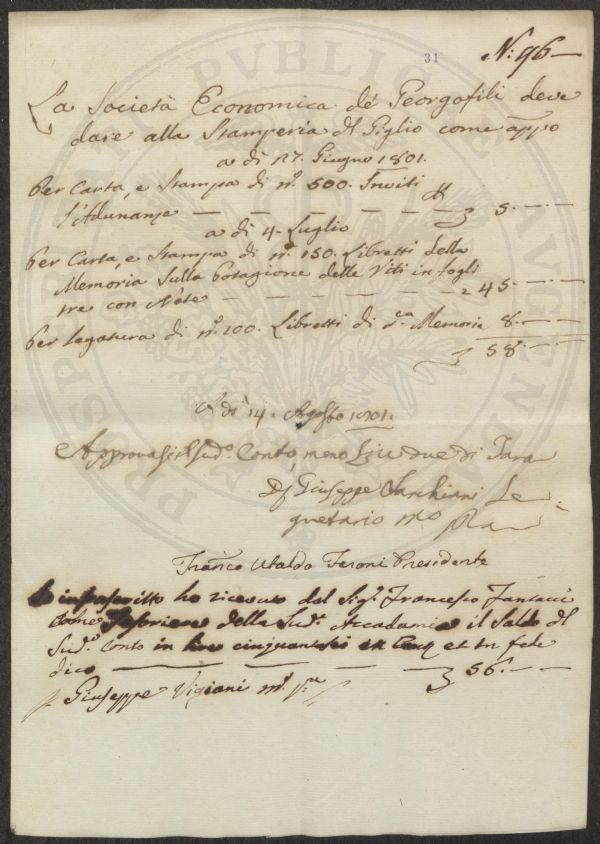 31
N: 96
La Società Economica de' Georgofili deve
dare alla Stamperia del Giglio come app.o
a di 17. Giugno 1801.
Per Carta, e Stampa di n.o 500. Inviti
l'Adunanze 5.
a di 4. Luglio
Per Carta, e Stampa di n.o 150. Libretti della
Memoria sulla Potagione delle Viti in fogli
tre con Note 45.
Per legatura di n.o 100. Libretti di d.ca Memoria 8.
58.
A di 14. Agosto 1801.
Approvasi il Sud.o Conto, meno Lire due di Tara
Giuseppe Sarchiani Se-
gretario
Franco Ubaldo Feroni Presidente
Io infrascritto ho ricevuto dal Sig.r Francesco Fantacci
come Tesoriere della Sud.a Accademia il Saldo del
Sud.o Conto in lire cinquantasei et in fede
dico 56.
Giuseppe Vigiani m.o p.a
PROSPERITATI PUBLICAE AUGENDAE